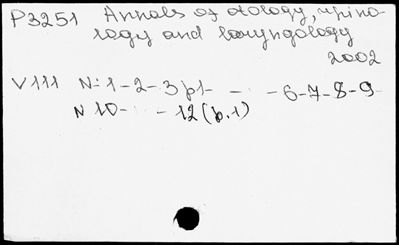 P3251 Annals of otology, rhino
logy and laryngology
2002
V 111 N: 1-2-3 p1- - -6-7-8-9
N 10- -12 (b.1)